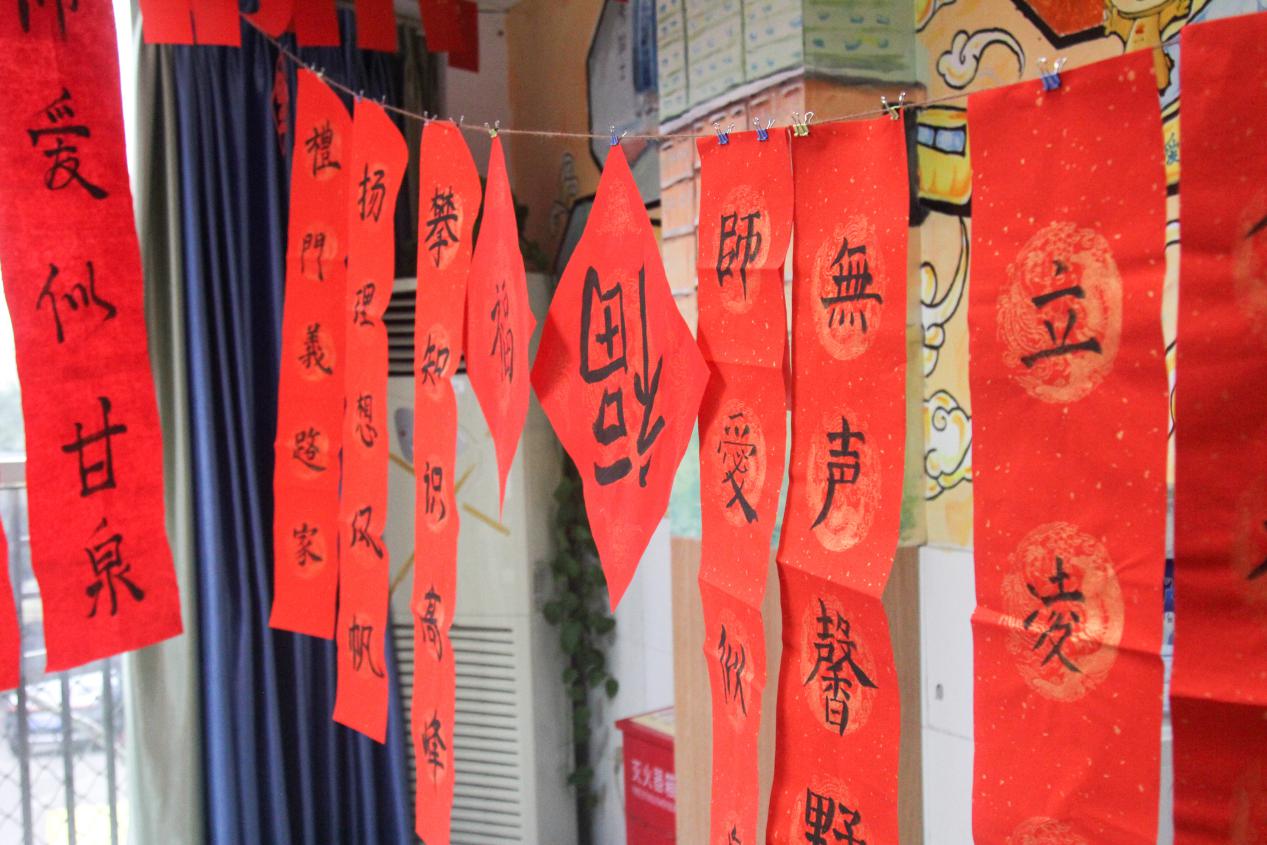 爱似甘泉
禮門義路家
扬理想风帆
攀知识高峰
福
福
師愛似
無声馨野
立凌
灭火器箱